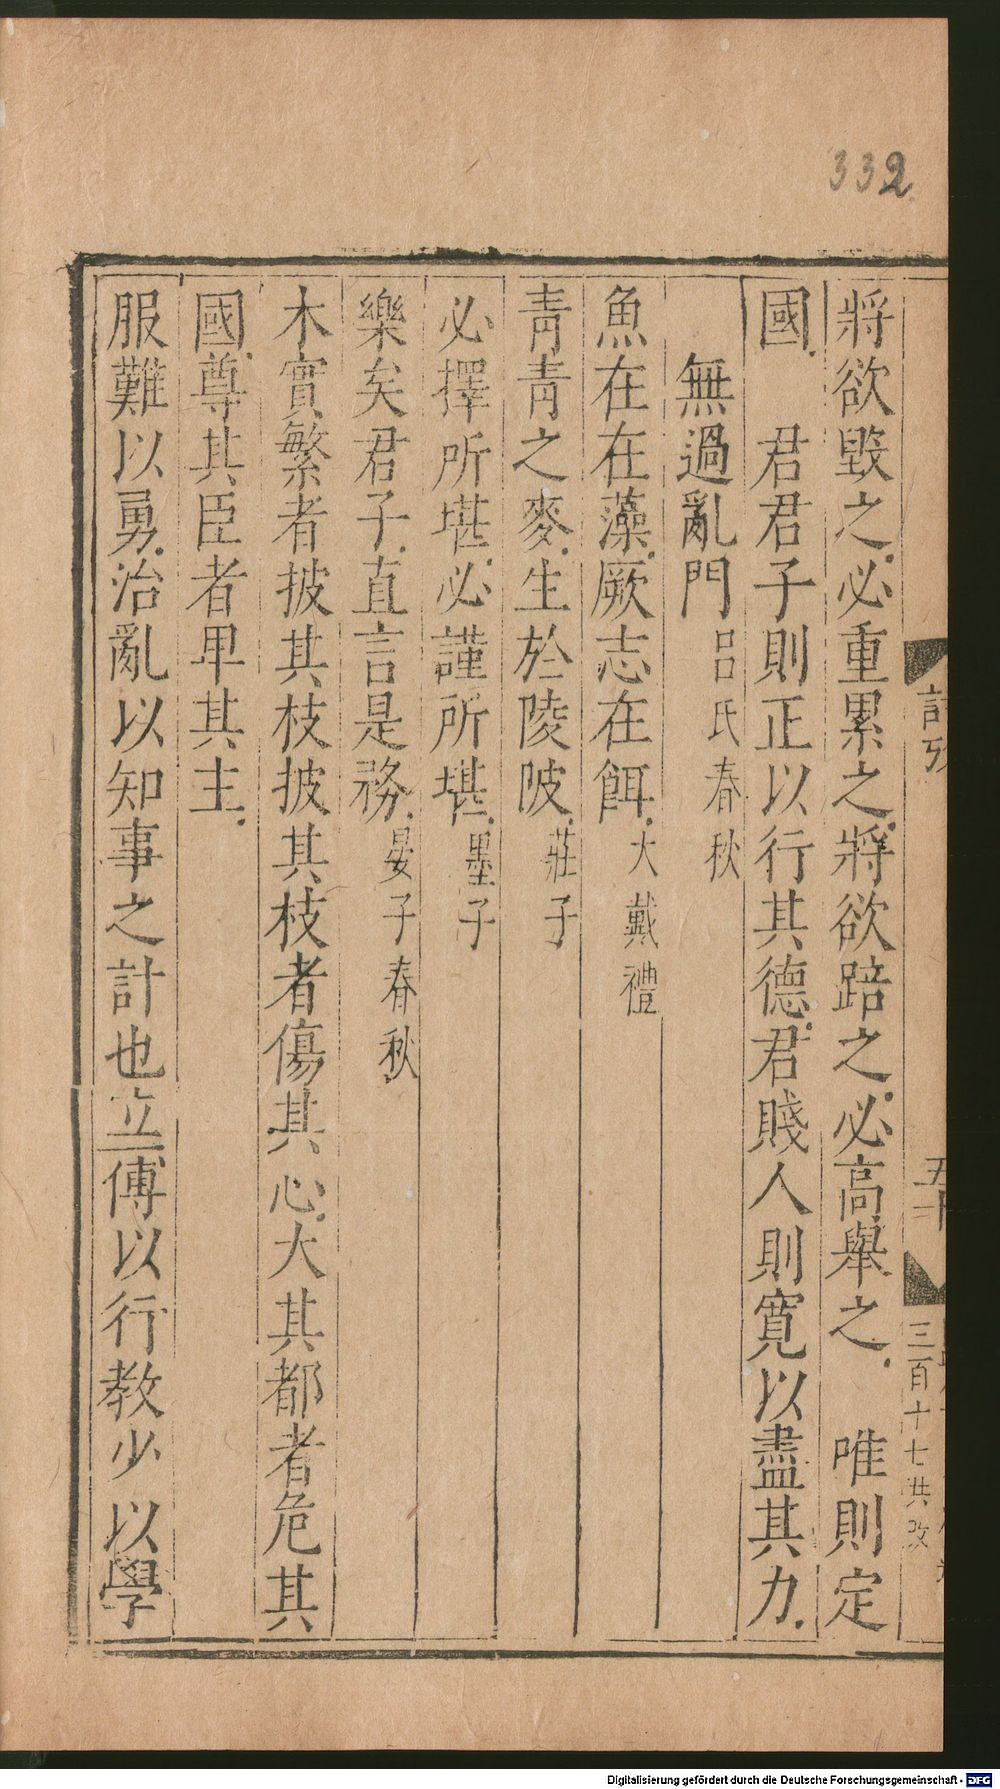 332
將欲毀之必重累之將欲踣之必高舉之 唯則定
國 君君子則正以行其德君賤人則寬以盡其力
無過亂門呂氏春秋
魚在在藻厥志在餌大戴禮
青青之麥生於陵陂莊子
必擇所堪必謹所堪墨子
樂矣君子直言是務晏子春秋
木實繁者披其枝披其枝者傷其心大其都者危其
國尊其臣者卑其主
服難以勇治亂以知事之計也立傅以行教少以學
五十
三百十七洪改
Digitalisierung gefördert durch die Deutsche Forschungsgemeinschaft - DFG